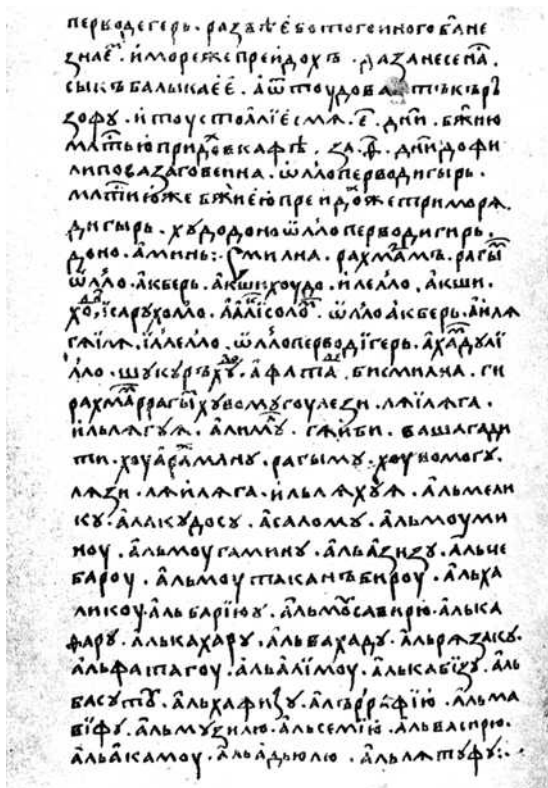 перводегерь. развѣе бо того иного бг҃а не
знаеⷨ. и море же преидохъ. да занесе нѧ
сык ъ балыкаее. а ѿтоудова тъкъръ
зофу. и тоу стоалі есмѧ. е҃. днїи. бж҃ию
млтⷭ҇ью придоⷯ в кафѣ. за. ѳ҃. днїи до фи
липова заговеина. ѡлло перводигырь.
млтⷭ҇ию же бж҃иею преидоⷯ же три морѧ.
дигырь. худо доно ѡлло перводигирь.
доно. аминь:. смилна. рахмаⷨмъ. рагыⷨ
ѡлло. акберь. акши хоудо. илелло. акши.
хоⷣ. їса рухолло. ааліⷦсолоⷨ. ѡлло акберь. аилѧ
гѧїлѧ. їлелло. ѡлло перводїгерь. ахаⷨдулї
лло. шукуръ худоⷣ. афатаⷣ. бисмилна. ги
рахмаⷨррагыⷨ хувомугоулези. лѧїлѧга.
ильлѧгуѧ. алимуⷧ. гѧиби. вашагади
ти. хоуарахⷨману. рагыму. хоувомогу.
лѧзи. лѧилѧга. ильлѧхуѧ. альмели
ку. алакудосу. асалому. альмоуми
ноу. альмоугамину. альазизу. альче
бароу. альмоутаканъбироу. альха
ликоу. альбарїюу. альмоусавирю. алька
фару. алькахару. альвахаду. альрѧзаку.
альфатагоу. альалїмоу. алькабїзу. аль
басуту. альхафизу. алъррафїю. альма
вїфу. альмузилю. альсемїю. альвасирю.
альакамоу. альадьюлю. альлѧтуфу:.